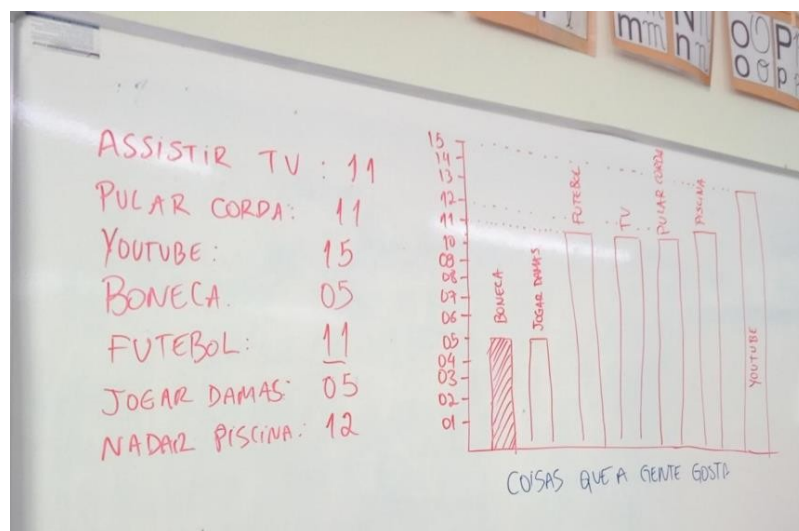 m m
N
n n
O O P
o o p
ASSISTIR TV : 11
PULAR CORDA: 11
YOUTUBE: 15
BONECA. 05
FUTEBOL: 11
JOGAR DAMAS: 05
NADAR PISCINA: 12
15
14
13
12
11
10
09
08
07
06
05
04
03
02
01
BONECA
JOGAR DAMAS
FUTEBOL
TV
PULAR CORDA
PISCINA
YOUTUBE
COISAS QUE A GENTE GOSTA